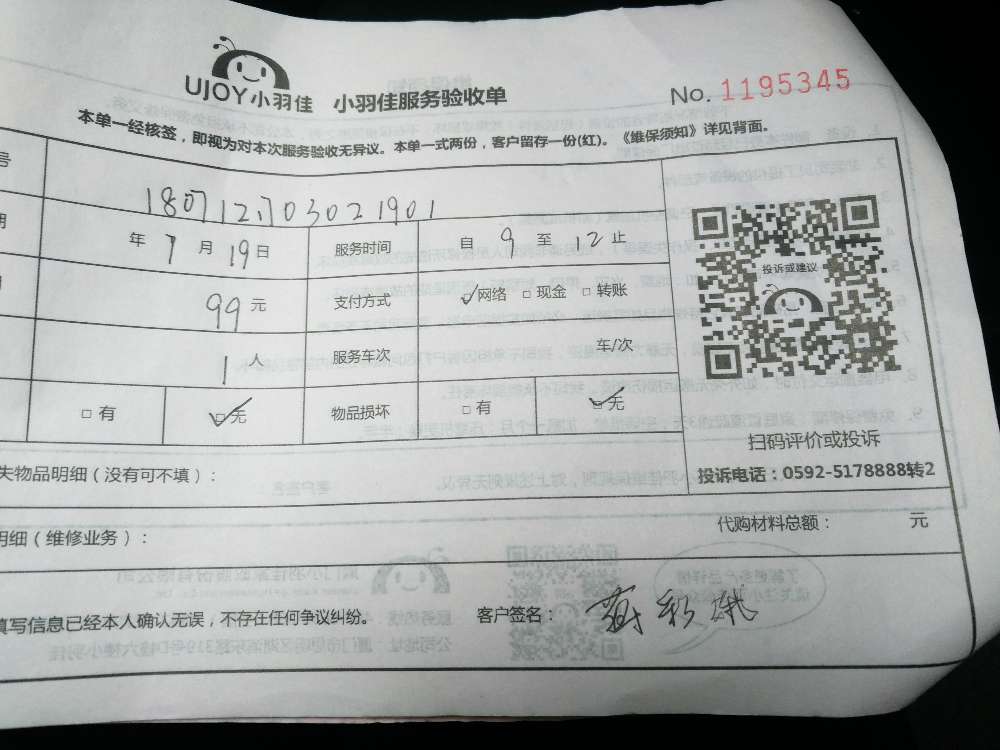 UJOY小羽佳 小羽佳服务验收单 No. 1195345
本单一经核签，即视为对本次服务验收无异议。本单一式两份，客户留存一份(红)。《维保须知》详见背面。
号
期 年 7 月 19 日 服务时间 自 9 至 12 止
99 元 支付方式 ☑网络 □现金 □转账
投诉或建议
1 人 服务车次 车/次
□有 ☑无 物品损坏 □有 ☑无
扫码评价或投诉
投诉电话：0592-5178888转2
失物品明细（没有可不填）：
明细（维修业务）： 代购材料总额： 元
填写信息已经本人确认无误，不存在任何争议纠纷。 客户签名：